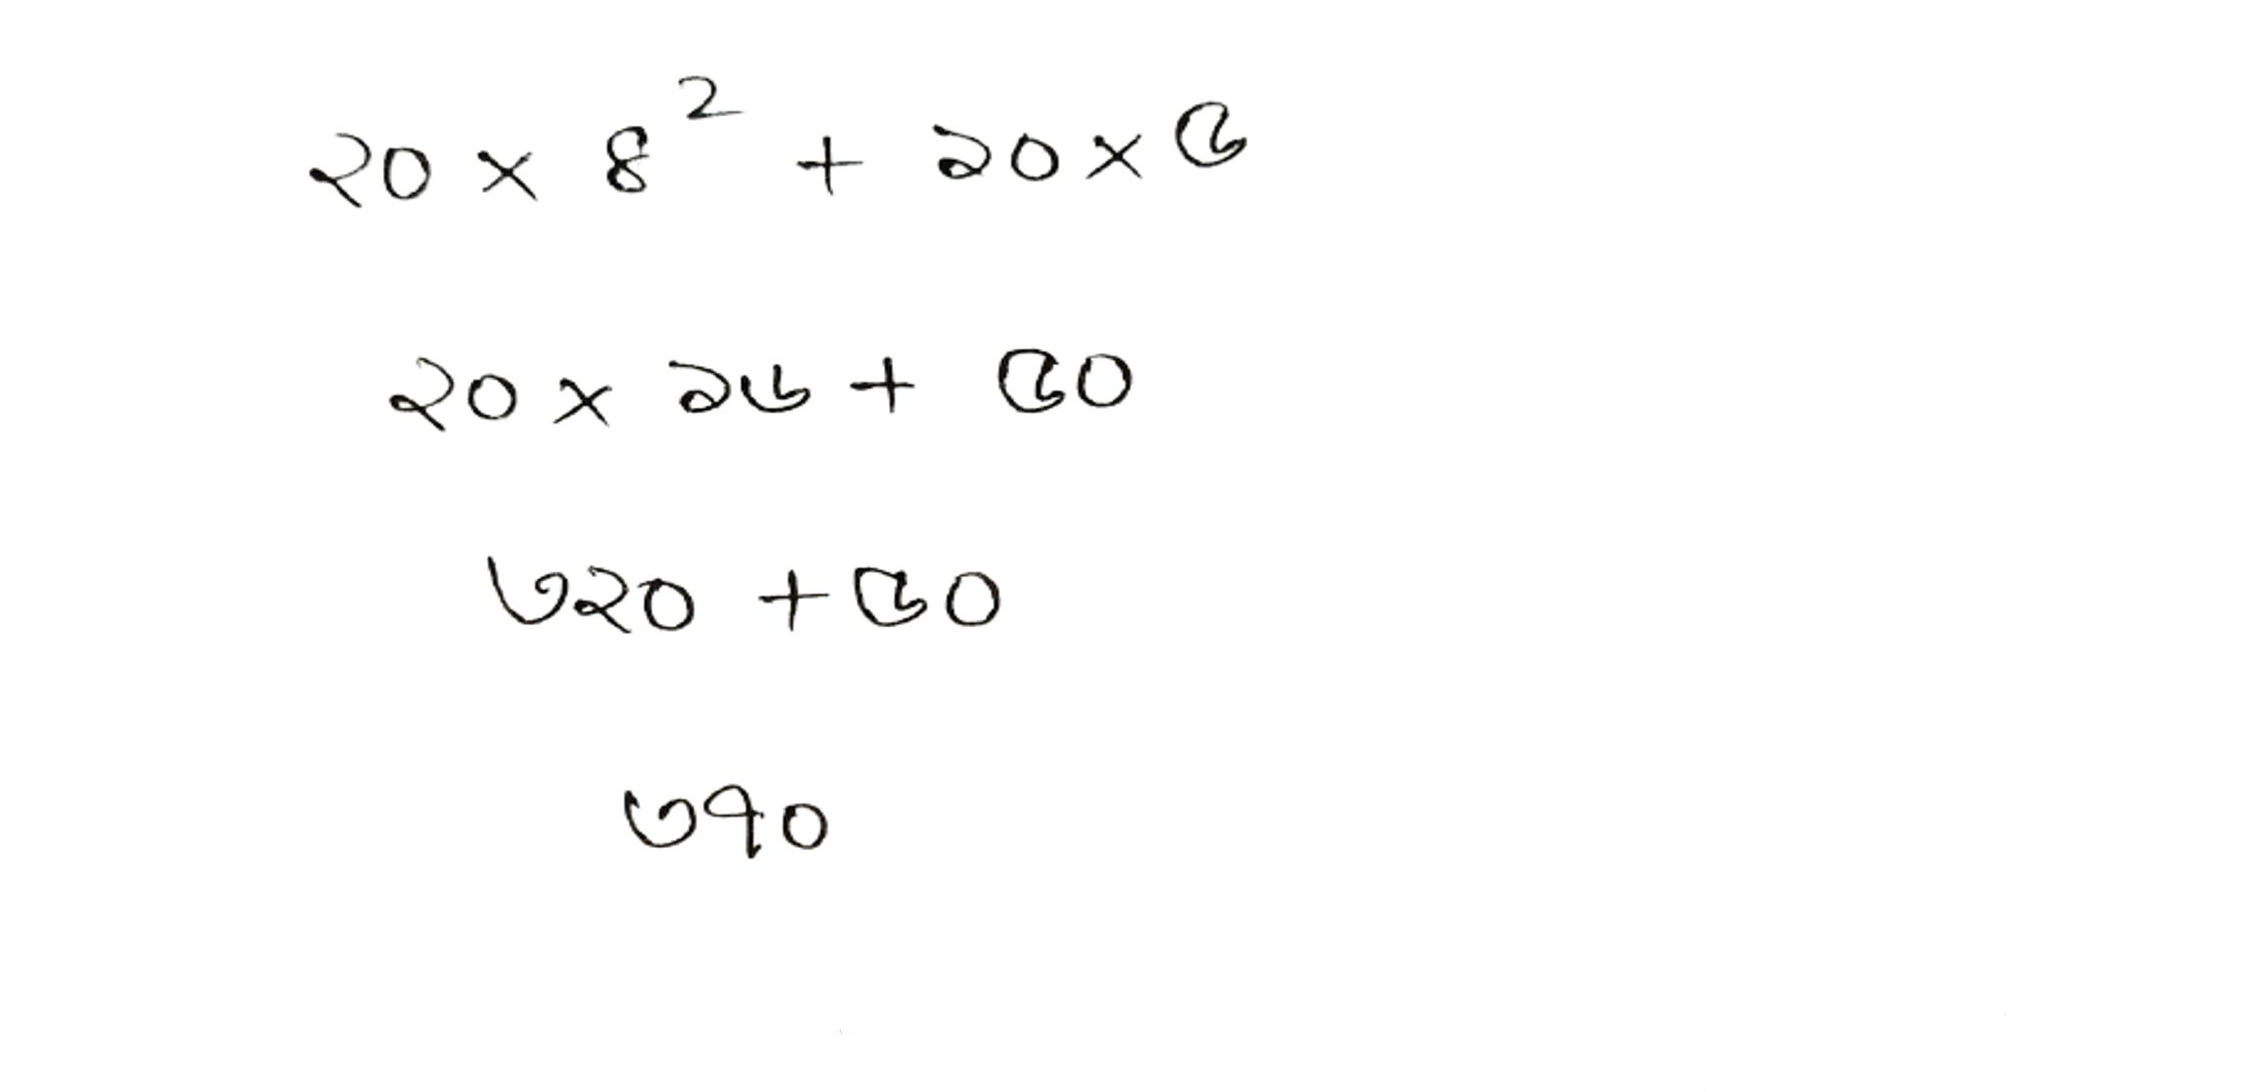 ২০ × ৪² + ১০ × ৫
২০ × ১৬ + ৫০
৩২০ + ৫০
৩৭০